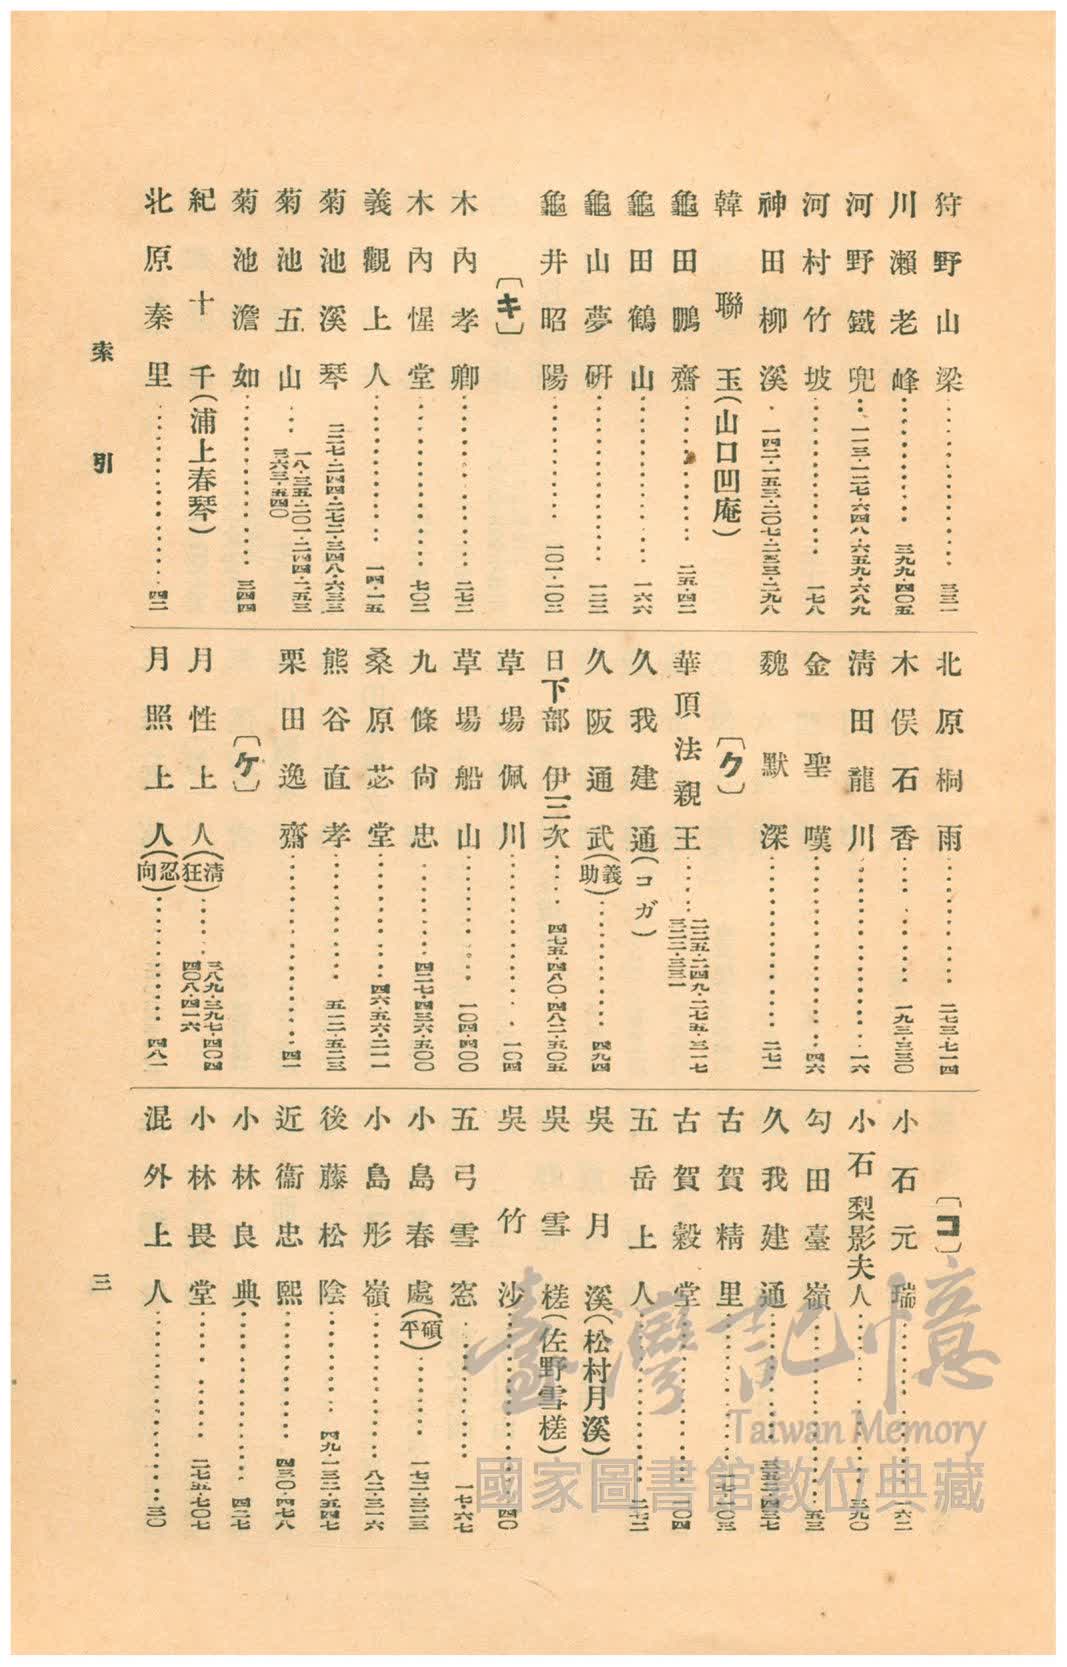 狩野山梁……………三三一
川瀨老峰……三九九・四〇五
河野鐵兜…一一三・一二七・六四八・六五九・六八九
河村竹坡……………一七八
神田柳溪・一四二・一五三・二〇七・二三三・二九八
韓聯玉(山口凹庵)
龜田鵬齋……………二五・四二
龜田鶴山……………一六六
龜山夢硏……………一二二
龜井昭陽……………一〇一・一〇二
〔キ〕
木內孝卿……………二七二
木內惺堂……………七〇二
義觀上人……………一四・一五
菊池溪琴 二二七・二四四・二七二・三四八・六三三
菊池五山…一八・三五・二〇一・二四四・二五三
三六三・五四〇
菊池澹如……………三四四
紀十千(浦上春琴)
北原秦里……………四二
北原桐雨……………二七三・七一四
木俣石香……………一九三・三三〇
淸田龍川……………一六
金聖嘆……………四六
魏默深……………二七一
〔ク〕
華頂法親王……二二五・二四九・二七五・三一七
三二二・三三一
久我建通(コガ)
久阪通武(義助)……………四九四
日下部伊三次……四七五・四八〇・四八二・五〇五
草場佩川……………一〇四
草場船山……………一〇四・四〇〇
九條尙忠……四二七・四三六・五〇〇
桑原苾堂……………四六・五六・二一一
熊谷直孝……………五一二・五二三
栗田逸齋……………四一
〔ケ〕
月性上人(淸狂)……三八九・三九七・四〇四
四〇八・四一六
月照上人(忍向)……………四八一
〔コ〕
小石元瑞……………一六二
小石梨影夫人……………三九〇
勾田臺嶺……………五三
久我建通……………三五三・四三七
古賀精里……………一七・一〇三
古賀穀堂……………一〇四
五岳上人……………二七二
吳月溪(松村月溪)
吳雪槎(佐野雪槎)
吳竹沙……………一四〇
五弓雪窓……………一七・六七
小島春處(碩平)……一七二・三二三
小島彤嶺……………八二・三一六
後藤松陰……四九・一三二・五四七
近衞忠熙……………四三〇・四七八
小林良典……………四二七
小林畏堂……………二七五・七〇七
混外上人……………三〇
索引
三
臺灣記憶
Taiwan Memory
國家圖書館數位典藏